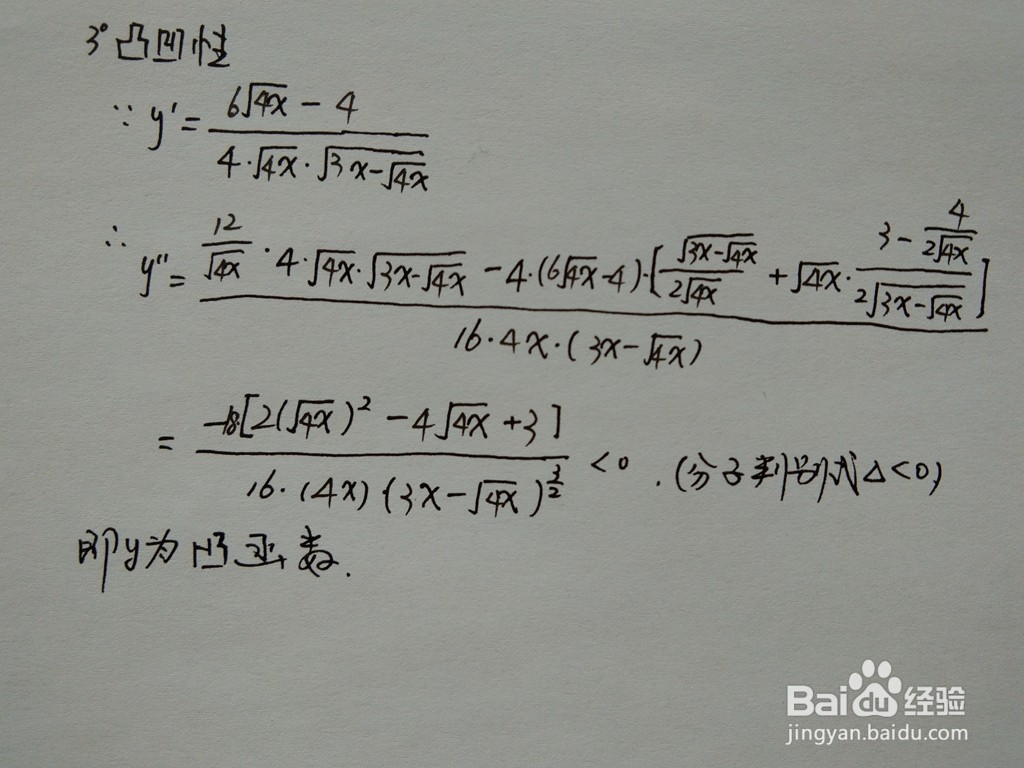 3° 凸凹性
∵ y' = (6√(4x) - 4) / (4·√(4x)·√(3x-√(4x)))
∴ y'' = (12/√(4x) · 4·√(4x)·√(3x-√(4x)) - 4·(6√(4x)-4)·[√(3x-√(4x))/(2√(4x)) + √(4x)·(3 - 4/(2√(4x)))/(2√(3x-√(4x)))]) / (16·4x·(3x-√(4x)))
= -18[2(√(4x))² - 4√(4x) + 3] / (16·(4x)(3x-√(4x))^(3/2)) < 0 . (分子判别式△<0)
即y为凹函数.
Baidu 经验
jingyan.baidu.com